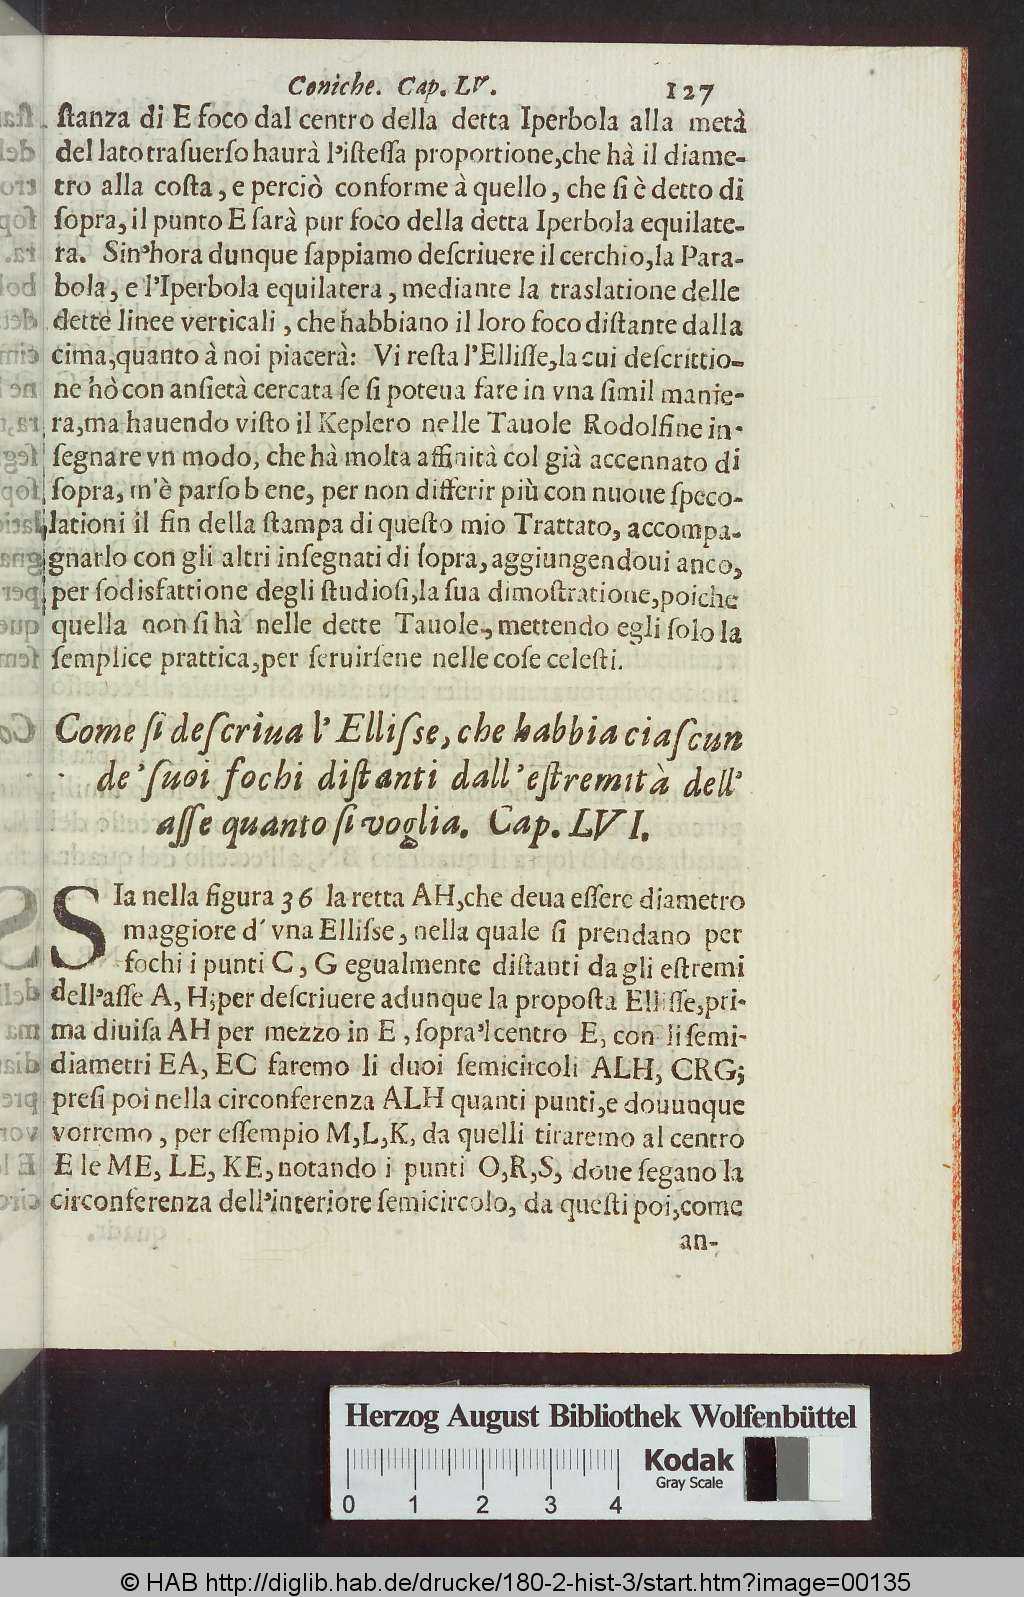 Coniche. Cap. LV. 127
ſtanza di E foco dal centro della detta Iperbola alla metà
del lato traſuerſo haurà l'iſteſſa proportione, che hà il diame-
tro alla coſta, e perciò conforme à quello, che ſi è detto di
ſopra, il punto E ſarà pur foco della detta Iperbola equilate-
ra. Sin'hora dunque ſappiamo deſcriuere il cerchio, la Para-
bola, e l'Iperbola equilatera, mediante la traslatione delle
dette linee verticali, che habbiano il loro foco diſtante dalla
cima, quanto à noi piacerà: Vi reſta l'Elliſſe, la cui deſcrittio-
ne hò con anſietà cercata ſe ſi poteua fare in vna ſimil manie-
ra, ma hauendo viſto il Keplero nelle Tauole Rodolfine in-
ſegnare vn modo, che hà molta affinità col già accennato di
ſopra, m'è parſo bene, per non differir più con nuoue ſpeco-
lationi il fin della ſtampa di queſto mio Trattato, accompa-
gnarlo con gli altri inſegnati di ſopra, aggiungendoui anco,
per ſodisfattione degli ſtudioſi, la ſua dimoſtratione, poiche
quella non ſi hà nelle dette Tauole, mettendo egli ſolo la
ſemplice prattica, per ſeruirſene nelle coſe celeſti.
Come ſi deſcriua l'Elliſſe, che habbia ciaſcun
de' ſuoi fochi diſtanti dall'eſtremità dell'
aſſe quanto ſi voglia. Cap. LVI.
SIa nella figura 36 la retta AH, che deua eſſere diametro
maggiore d'vna Elliſse, nella quale ſi prendano per
fochi i punti C, G egualmente diſtanti da gli eſtremi
dell'aſſe A, H; per deſcriuere adunque la propoſta Elliſſe, pri-
ma diuiſa AH per mezzo in E, ſopra'l centro E, con li ſemi-
diametri EA, EC faremo li duoi ſemicircoli ALH, CRG;
preſi poi nella circonferenza ALH quanti punti, e douunque
vorremo, per eſſempio M, L, K, da quelli tiraremo al centro
E le ME, LE, KE, notando i punti O, R, S, doue ſegano la
circonferenza dell'interiore ſemicircolo, da queſti poi, come
an-
Herzog August Bibliothek Wolfenbüttel
0 1 2 3 4
Kodak
Gray Scale
© HAB http://diglib.hab.de/drucke/180-2-hist-3/start.htm?image=00135